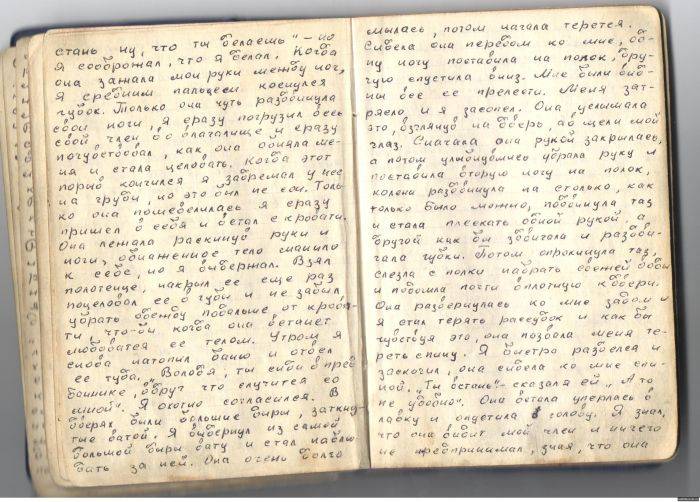 стань ну, что ты делаешь" – но
я сооброжал, что я делал. Когда
она зажала мои руки между ног,
я средним пальцем коснулся
губок. Только она чуть раздвинула
свои ноги, я сразу погрузил весь
свой член во влагалище и сразу
почувствовал, как она обняла ме-
ня и стала целовать. Когда этот
порно кончился я задремал у нее
на груди, но это был не сон. Толь-
ко она пошевелилась я сразу
пришел в себя и встал с кровати.
Она лежала раскинув руки и
ноги, обнаженное тело манило
к себе, но я выдержал. Взял
полотенце, накрыл ее еще раз
поцеловал ее в губы и не забыл
убрать одежду подальше, от крова-
ти что-бы когда она встанет
любоватся ее телом. Утром я
снова натопил баню и отвел
ее туда. Володя, ты сиди в пред-
баннике, вдруг что случится со
мной". Я охотно согласился. В
дверях были большие дыры, заткну-
тые ватой. Я выдернул из самой
большой дыры вату и стал наблю-
дать за ней. Она очень долго
мылась, потом начала терется.
Сидела она передом ко мне, од-
ну ногу поставила на полок, дру-
гую спустила вниз. Мне были вид-
ны все ее прелести. Меня зат-
рясло и я засопел. Она услышала
это, взглянув на дверь, а в щели мой
глаз. Сначала она рукой закрылась,
а потом улыбнувшись убрала руку и
поставила вторую ногу на полок,
колени раздвинула на столько, как
только было можно, подвинула таз
и стала плескать одной рукой, а
другой как бы сдвигала и раздви-
гала губки. Потом опрокинула таз,
слезла с полки набрать свежей воды
и подошла почти вплотную к двери.
Она развернулась ко мне задом и
я стал терять рассудок и как бы
чувствуя это, она позвала меня те-
реть спину. Я быстро разделся и
заскочил, она сидела ко мне спи-
ной. „Ты встань" – сказал я ей „А то
не удобно". Она встала уперлась в
лавку и опустила голову. Я знал,
что она видит мой член и ничего
не предпринимал, зная, что она